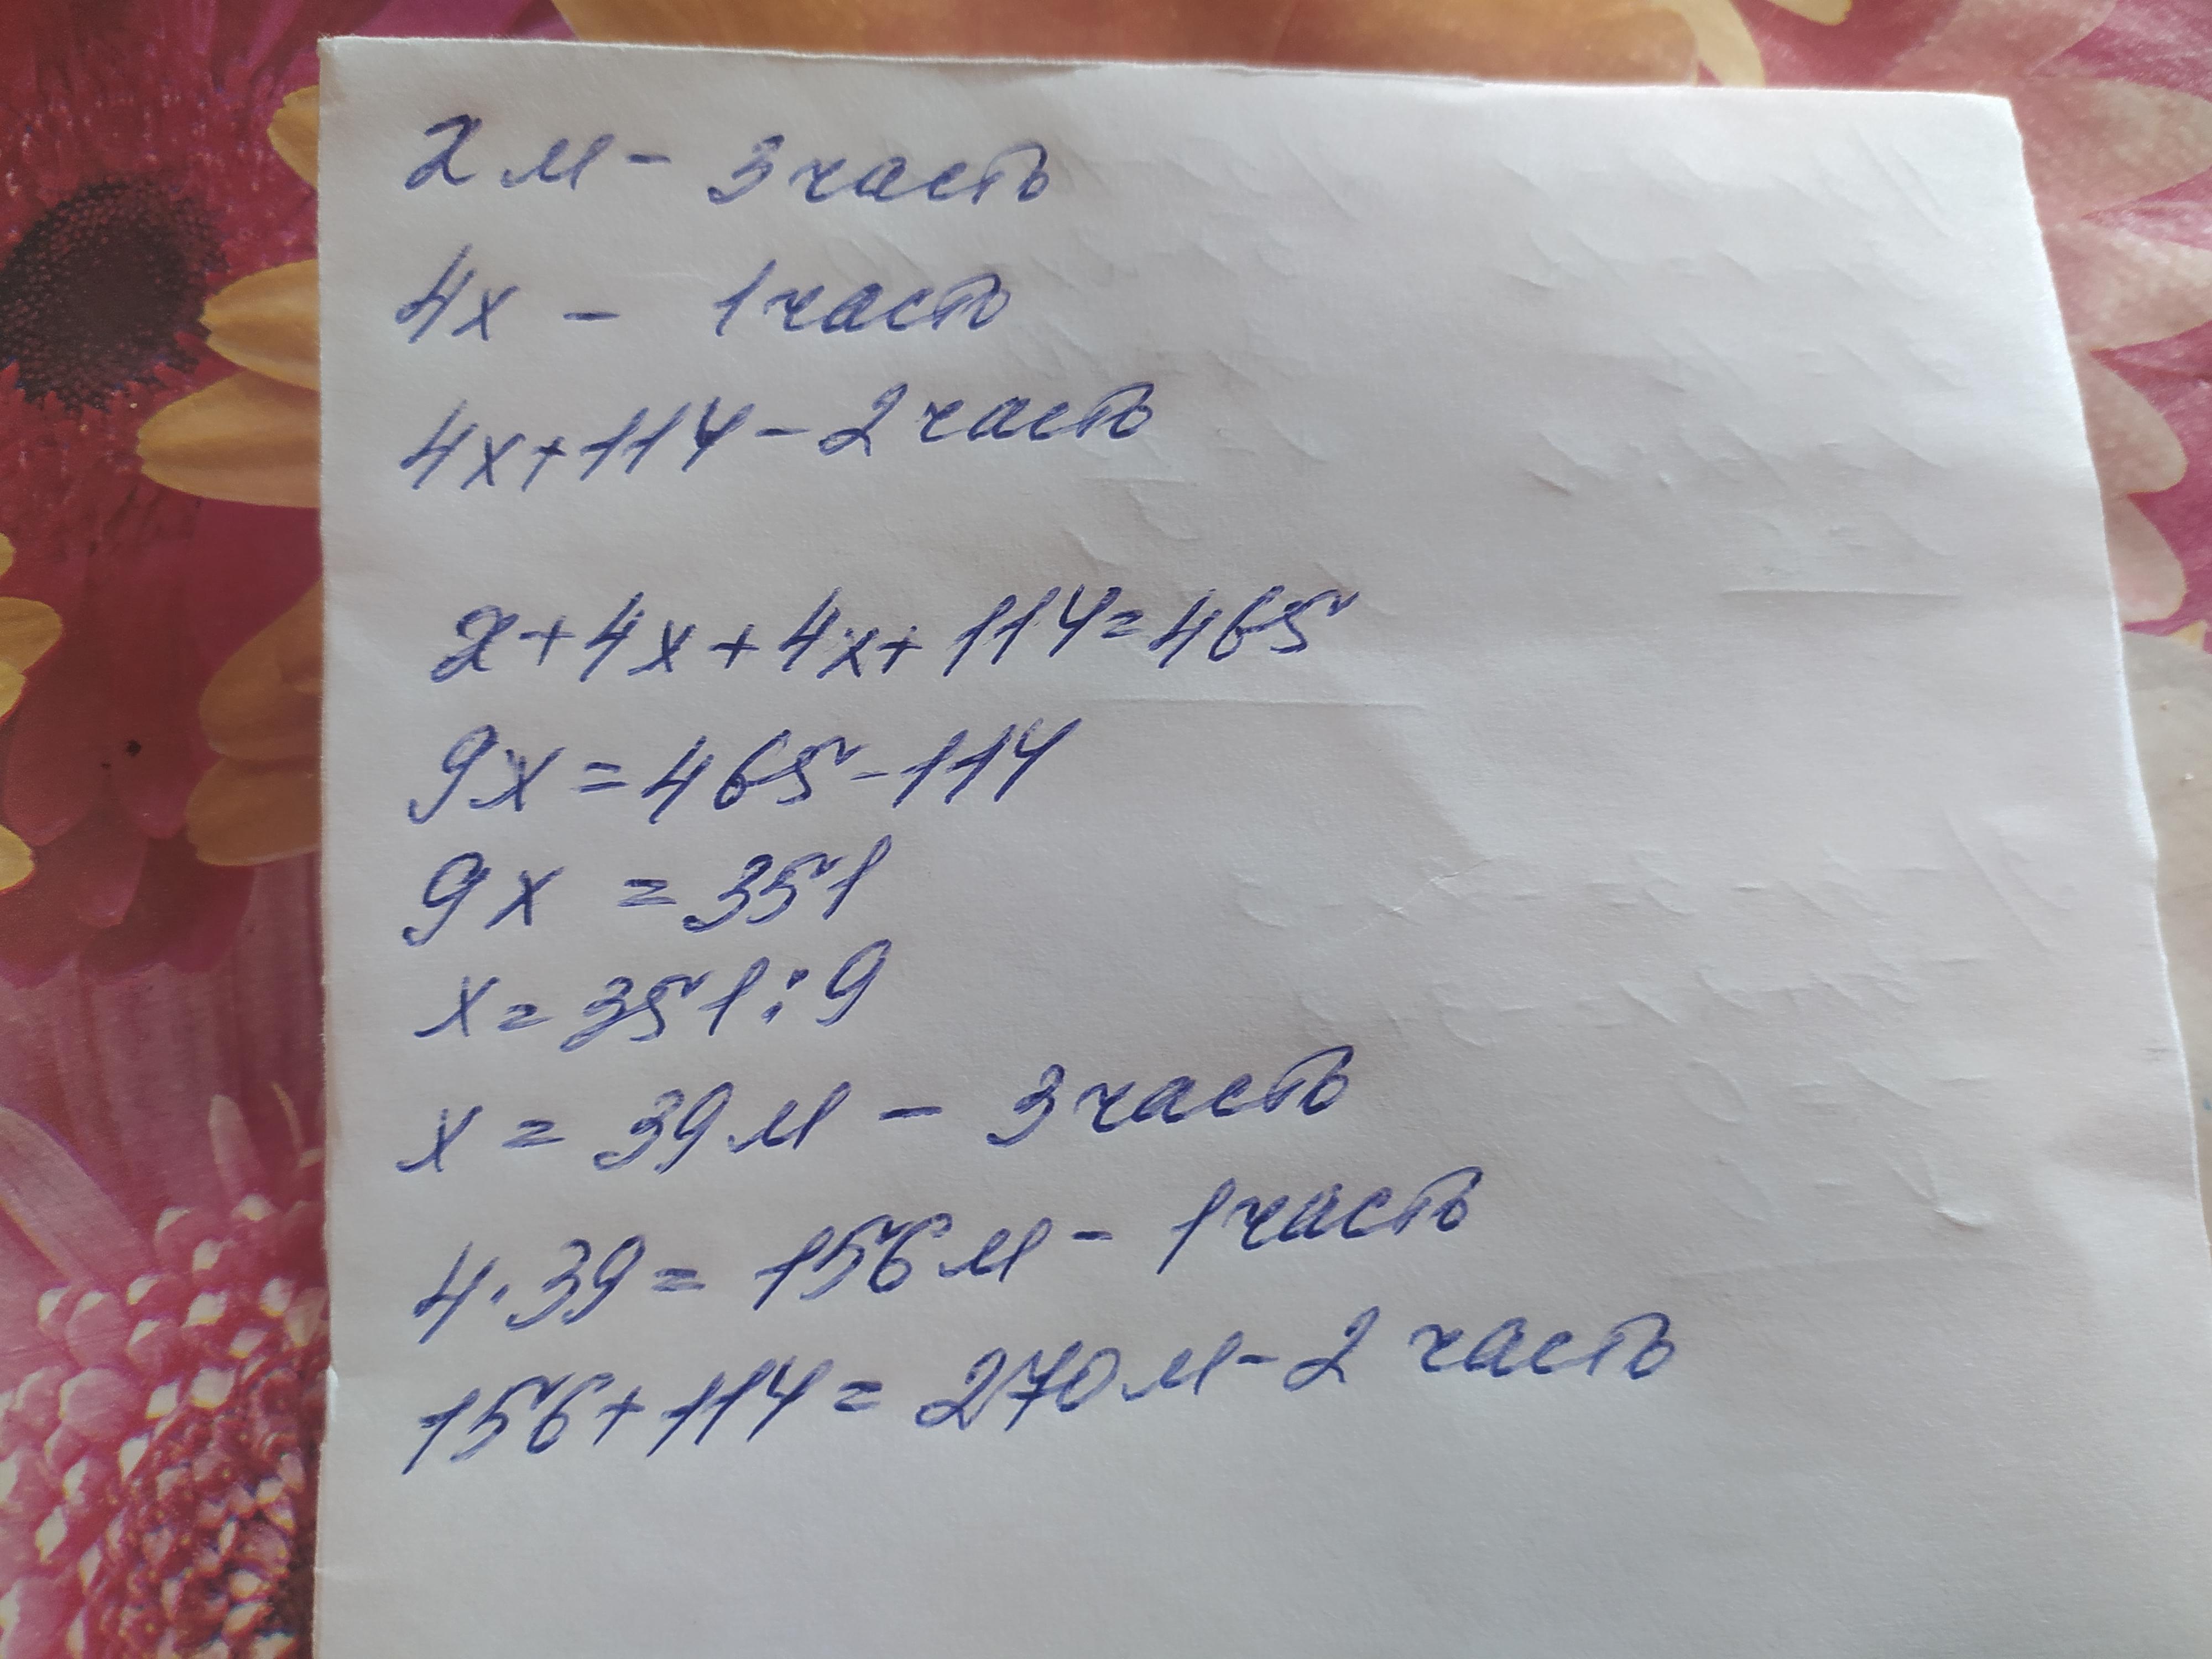 x м - 3 часть
4x - 1 часть
4x+114 - 2 часть
x+4x+4x+114=465
9x=465-114
9x=351
x=351:9
x=39м - 3 часть
4·39=156м - 1 часть
156+114=270м - 2 часть